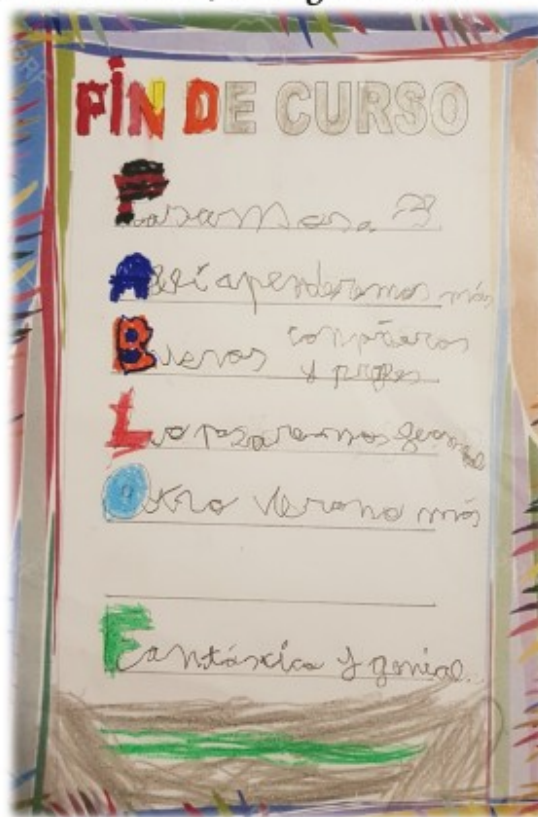 FIN DE CURSO
Pasamos a 3º.
Allí aprenderemos más
Buenos compañeros
y profes
Lo pasaremos genial
Otro verano más
Fantástico y genial.